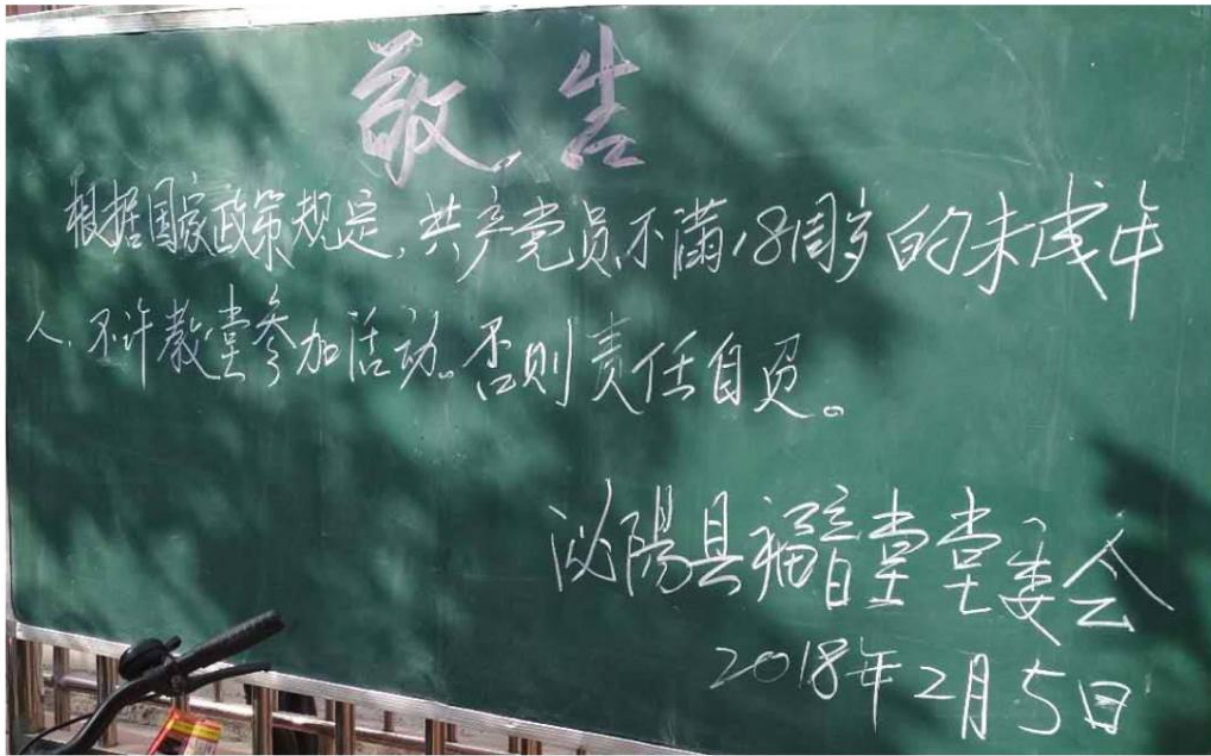 敬告
根据国家政策规定,共产党员,不满18周岁的未成年
人,不许教堂参加活动。否则责任自负。
泌陽县福音堂堂委会
2018年2月5日